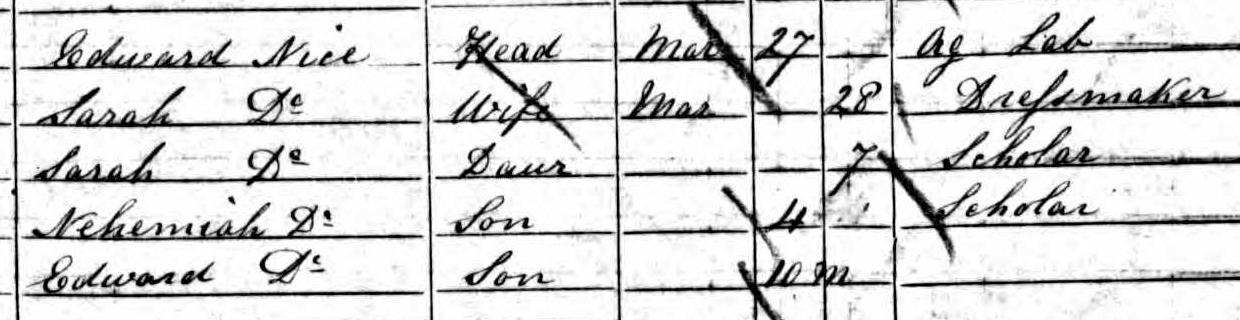 Edward Nice Head Mar 27 Ag Lab
Sarah Do Wife Mar 28 Dreſsmaker
Sarah Do Daur 7 Scholar
Nehemiah Do Son 4 Scholar
Edward Do Son 10 m